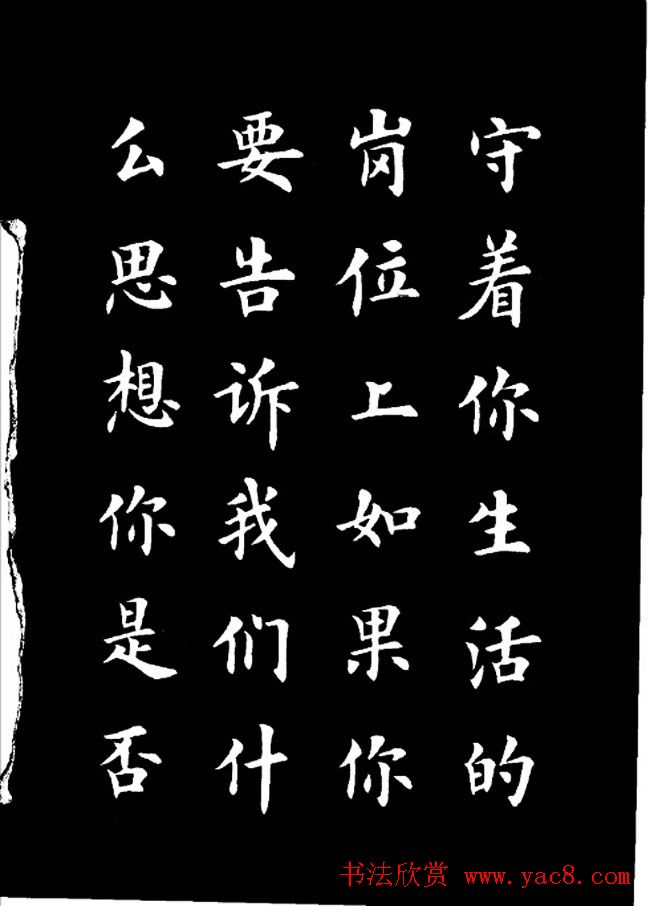 守着你生活的
岗位上如果你
要告诉我们什
么思想你是否
书法欣赏 www.yac8.com